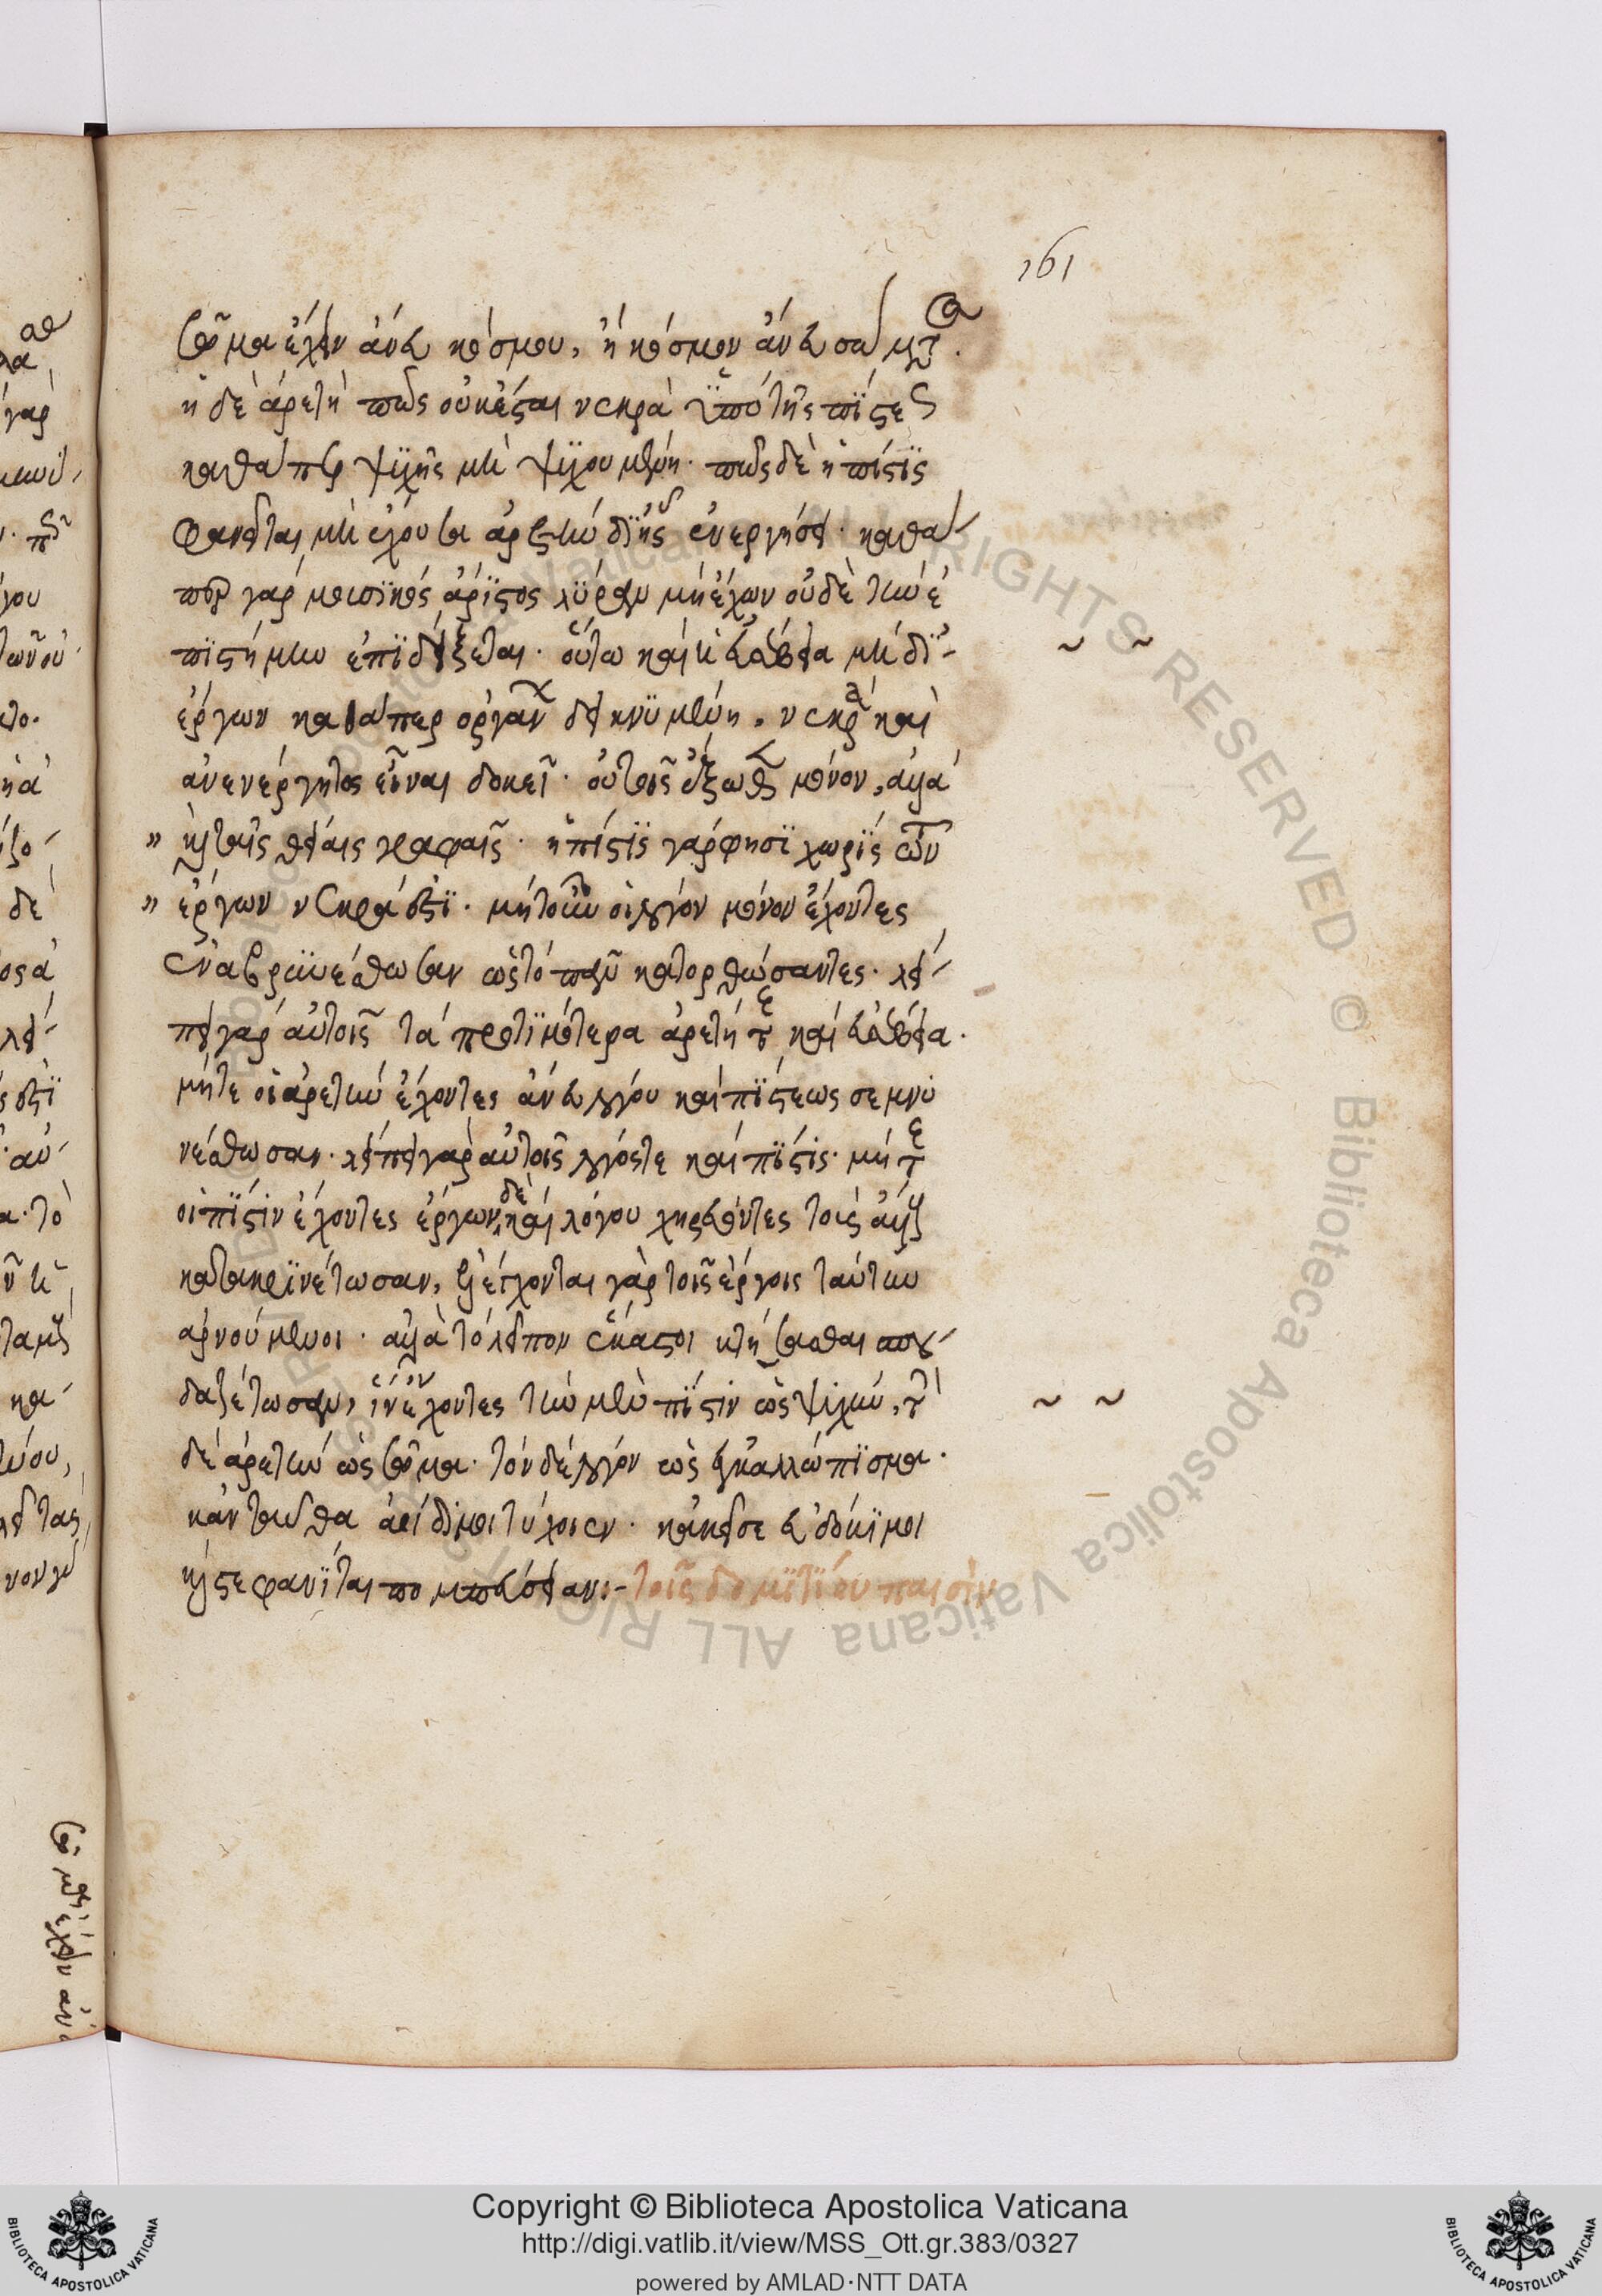 161
σῶμα ἔχειν ἄνευ κόσμου, ἢ κόσμον ἄνευ σώματος.
ἡ δὲ ἀρετὴ πῶς οὐκ ἔσται νεκρὰ ὑπὸ τῆς πίστεως
καθάπερ ψυχῆς μὴ ψυχουμένη. πῶς δὲ ἡ πίστις
φανεῖται μὴ ἔχουσα ἀρετὴν δι' ἧς ἐνεργήσει. καθά
περ γὰρ μουσικὸς ἄριστος λύραν μὴ ἔχων οὐδὲ τὴν ἐ
πιστήμην ἐπιδείξεται. οὕτω καὶ ἡ εὐσέβεια μὴ δι'
ἔργων καθάπερ ὀργάνων δεικνυμένη, νεκρὰ καὶ
ἀνενέργητος εἶναι δοκεῖ. οὐ τοῖς ἔξωθεν μόνον, ἀλλὰ
" καὶ ταῖς θείαις γραφαῖς. ἡ πίστις γάρ φησι χωρὶς τῶν
" ἔργων νεκρά ἐστι. μὴ τοίνυν οἱ λόγον μόνον ἔχοντες
ἐναβρυνέσθωσαν ὡς τὸ πᾶν κατορθώσαντες. λεί
πει γὰρ αὐτοῖς τὰ προτιμότερα ἀρετή τε καὶ εὐσέβεια.
μήτε οἱ ἀρετὴν ἔχοντες ἄνευ λόγου καὶ πίστεως σεμνυ
νέσθωσαν. λείπει γὰρ αὐτοῖς λόγος τε καὶ πίστις. μήτε
οἱ πίστιν ἔχοντες ἔργων δὲ καὶ λόγου χηρεύοντες τοὺς ἄλλους
κατακρινέτωσαν, ἐλέγχονται γὰρ τοῖς ἔργοις ταύτην
ἀρνούμενοι. ἀλλὰ τὸ λεῖπον ἕκαστοι κτήσασθαι σπου
δαζέτωσαν, ἵν' ἔχοντες τὴν μὲν πίστιν ὡς ψυχήν, τὴν
δὲ ἀρετὴν ὡς σῶμα. τὸν δὲ λόγον ὡς ἐγκαλλώπισμα.
κἀνταῦθα ἀοίδιμοι τύχοιεν. κἀκεῖσε εὐδόκιμοι
καὶ στεφανῖται πομπεύσειαν:- τοῖς δομιτίου παισίν
~ ~
~ ~
Copyright © Biblioteca Apostolica Vaticana
http://digi.vatlib.it/view/MSS_Ott.gr.383/0327
powered by AMLAD·NTT DATA
BIBLIOTECA APOSTOLICA VATICANA
BIBLIOTECA APOSTOLICA VATICANA